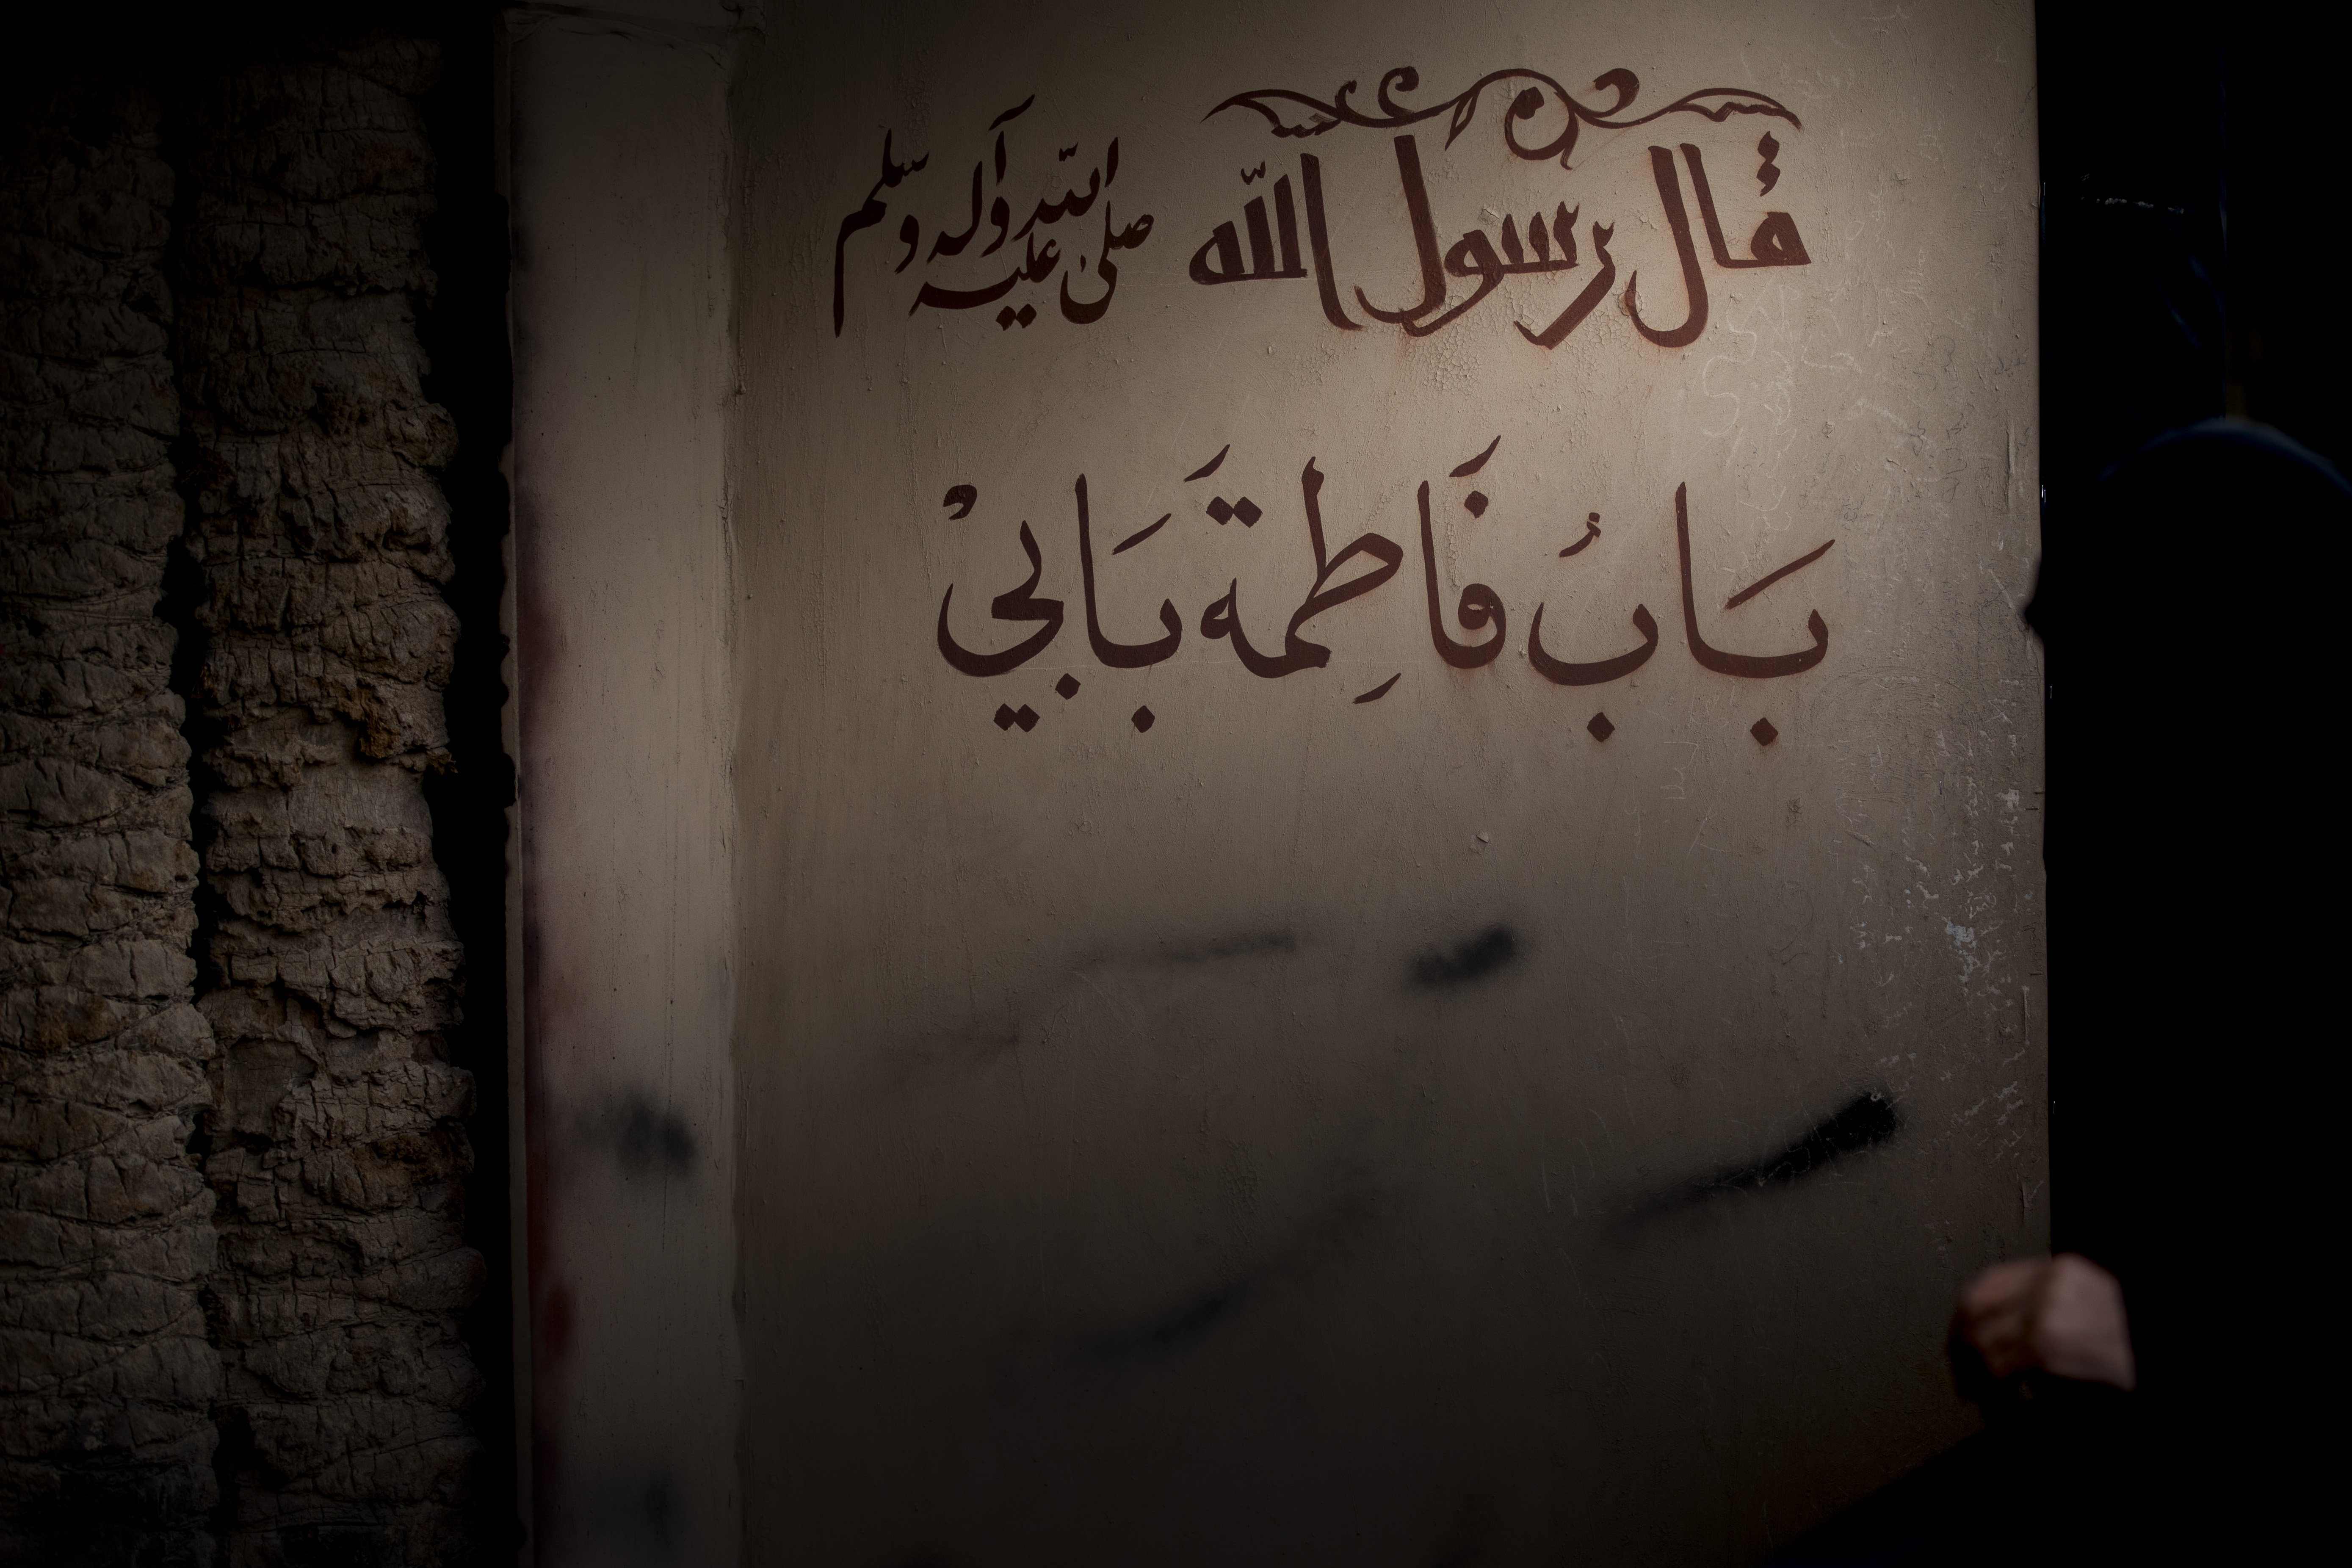 قال رسول الله صلى الله عليه وآله وسلم
بَابُ فَاطِمَةَ بَابِيْ